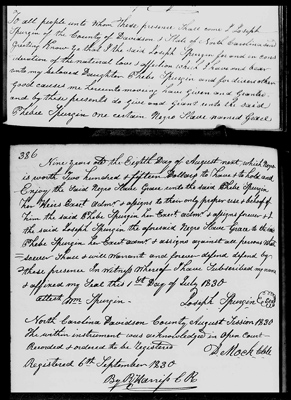 To all people unto Whom these presence Shall come I Joseph
Spurgin of the County of Davidson & State of North Carolina send
Greeting Know ye that I the said Joseph Spurgin for and in consi
deration of the natural love & affection which I have and bear
unto my beloved Daughter Phebe Spurgin and for divers other
good causes me hereunto moving have given and granted
and by these presents do give and grant unto the said
Phebee Spurgin one certain Negro Slave named Grace
386
Nine years old the Eighth Day of August next, which Negro
is worth Two hundred & fifteen Dollars to have & to hold and
Enjoy the said Negro Slave Grace unto the said Phebe Spurgin
her Heirs Exect admr & assigns to them only proper use & behoof
them the said Phebe Spurgin her Exect admr & assigns forever & I
the said Joseph Spurgin the aforesaid Negro Slave Grace to the said
Phebe Spurgin her Exect admr & assigns against all persons What
soever Shall & will Warrant and forever defend by
these presence In witness Whereof I have Subscribed my name
& affixed my Seal this 1st Day of July 1830
attest Wm Spurgin Joseph Spurgin
North Carolina Davidson County August Session 1830
The within instrument was acknowledged in Open Court
Recorded & ordered to be Registered
D Mock Clk
Registered 6th September 1830
By R Harris C R